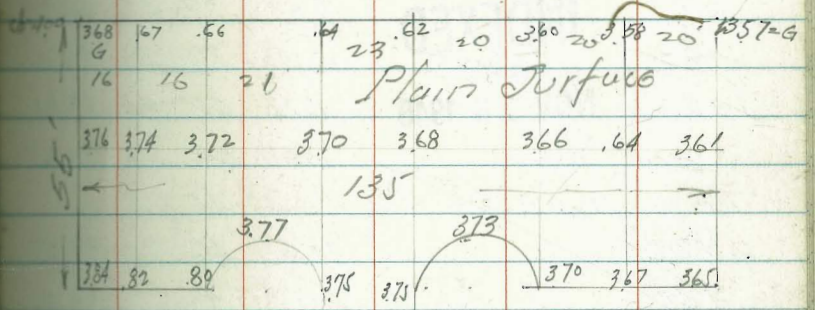 368 .67 .66 .64 .62 3.60 3.58 1357=G
G 23 20 20 20
16 16 21 Plain Surface
376 3.74 3.72 3.70 3.68 3.66 .64 361
55'
135
3.77 373
384 .82 .80 .375 3.75 370 3.67 365